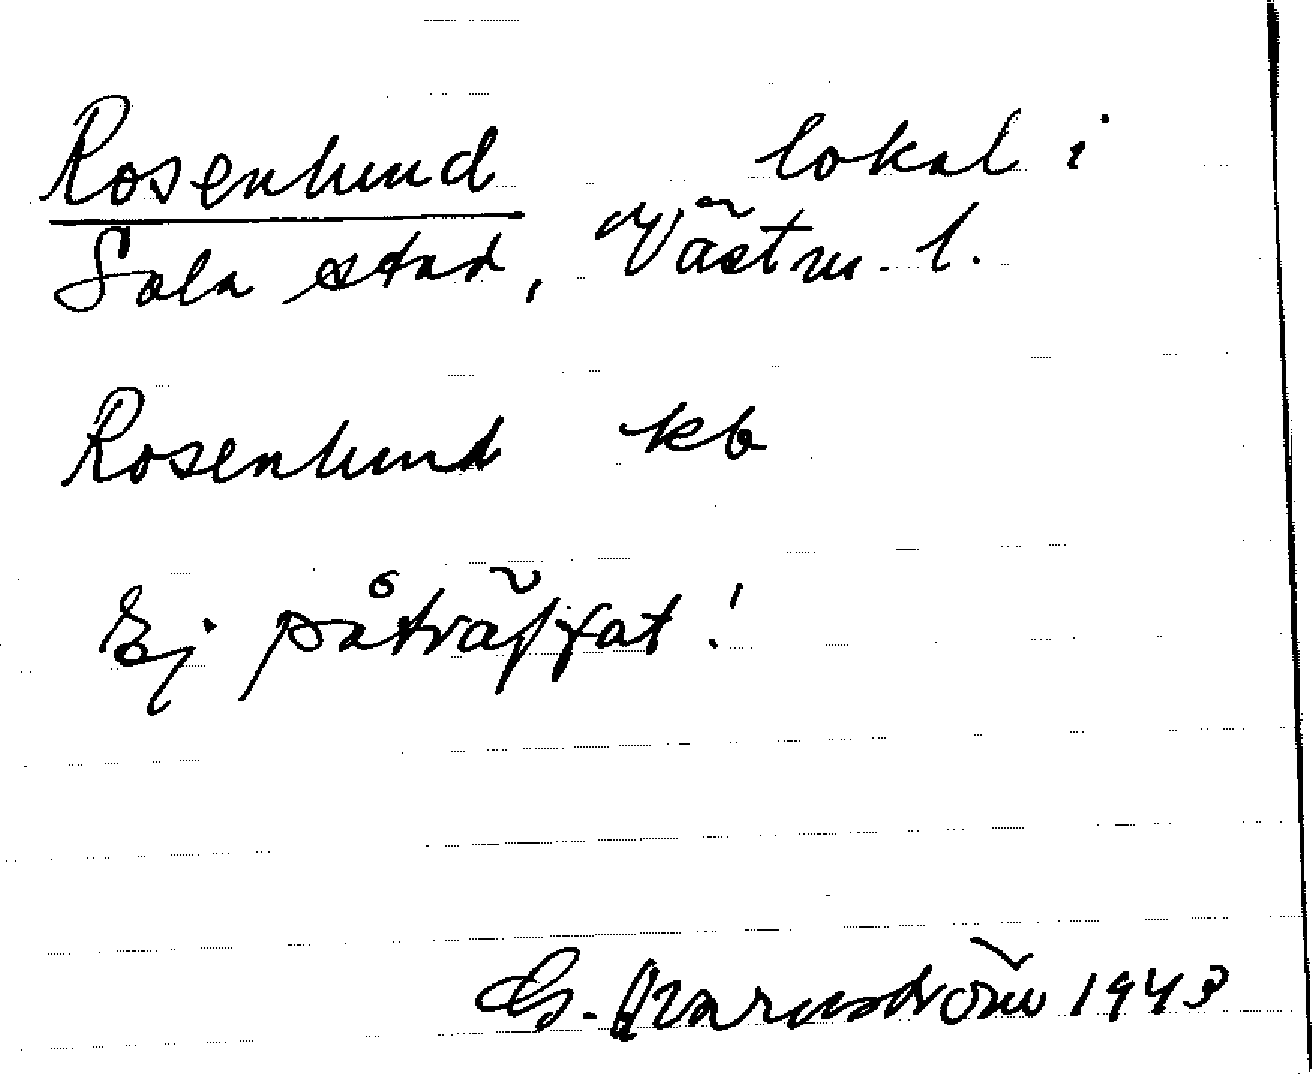 Rosenlund lokal i
Sala stad, Västm. l.
Rosenlund kb
Ej påträffat!
G. Kvarnström 1943